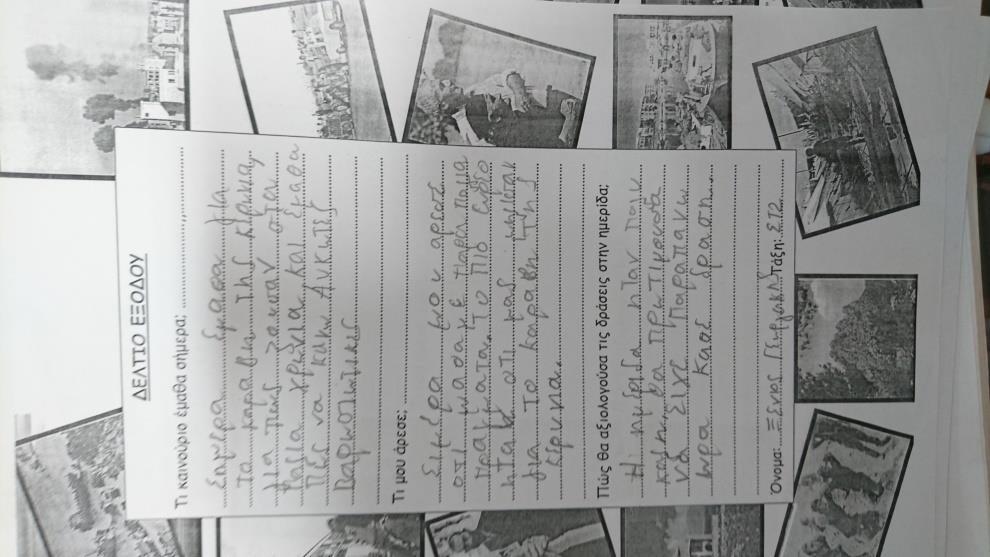 ΔΕΛΤΙΟ ΕΞΟΔΟΥ
Τι καινούριο έμαθα σήμερα;
Σημερα έμαθα για
τα καραβια της Κερινια,
για πως ζουσαν στα
παλια χρώνια και έμαθα
πως να κανω
Τι μου άρεσε;
Σιμερα μου αρεσε
οτι μιασαμε παρα πολλα
πραγματα. το πιο ενδιο
ηταν οτι μας μιλησαν
για το καραβη της
Κερινια.
Πώς θα αξιολογούσα τις δράσεις στην ημερίδα;
Η ημεριδα ηταν πολι
καλη. θα προτιμουσα
να ειχε παραπανω
ωρα καθε δραση.
Όνομα: Ξενιος Τάξη: ΣΤ2